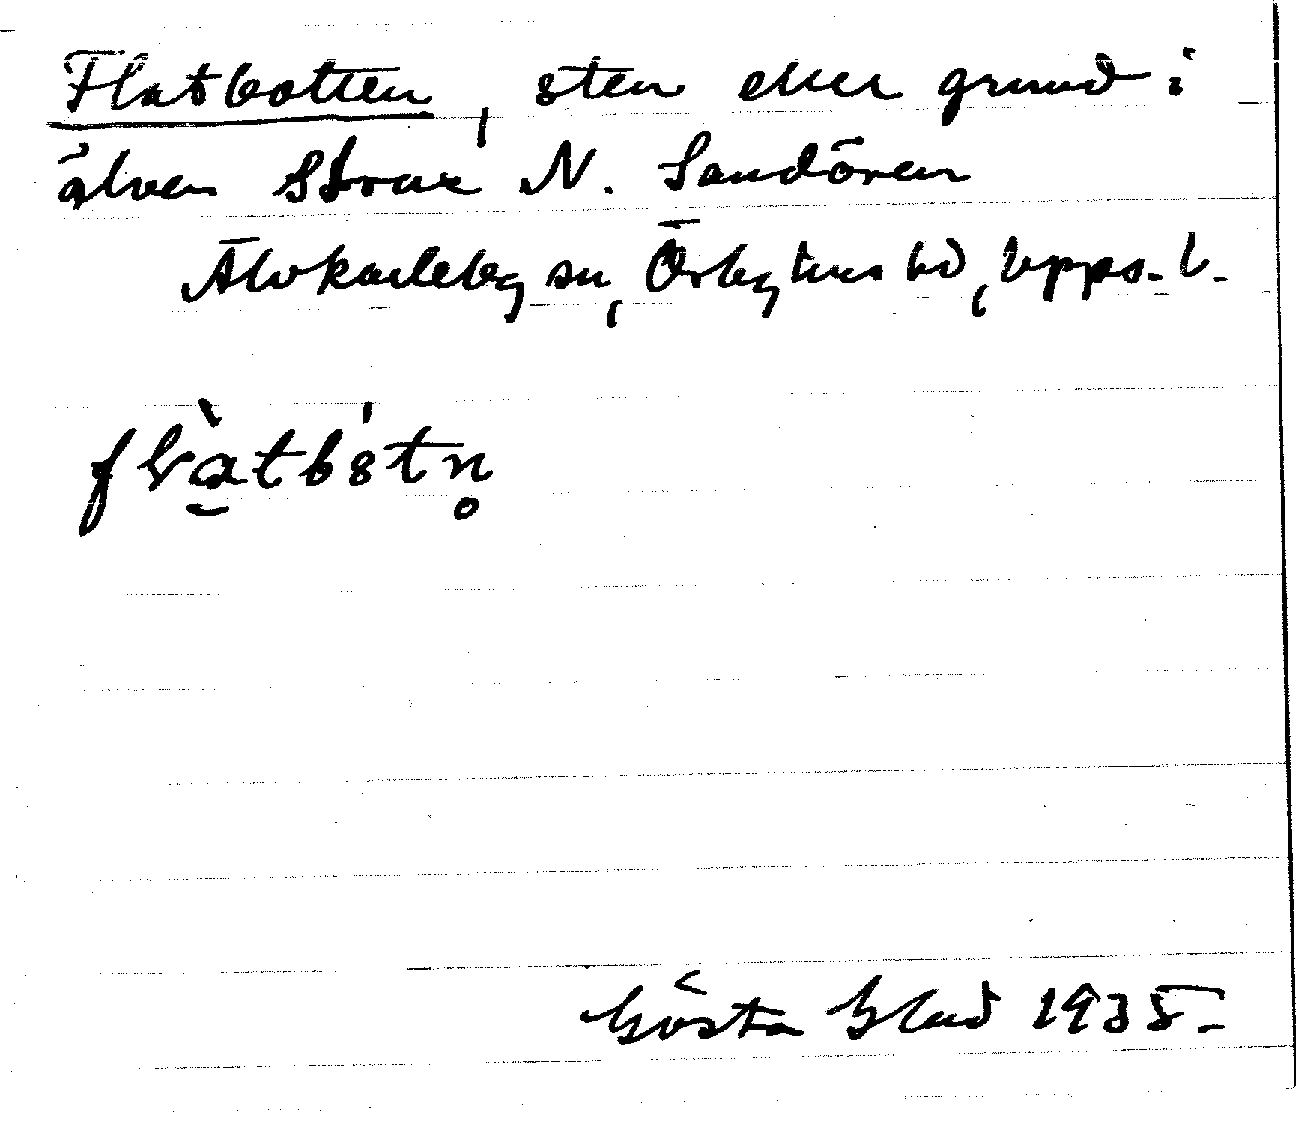 Flatbotten, sten eller grund i
älven strax N. Sandören
Älvkarleby sn, Örbyhus hd, Upps. l.
Gösta Blad 1935.